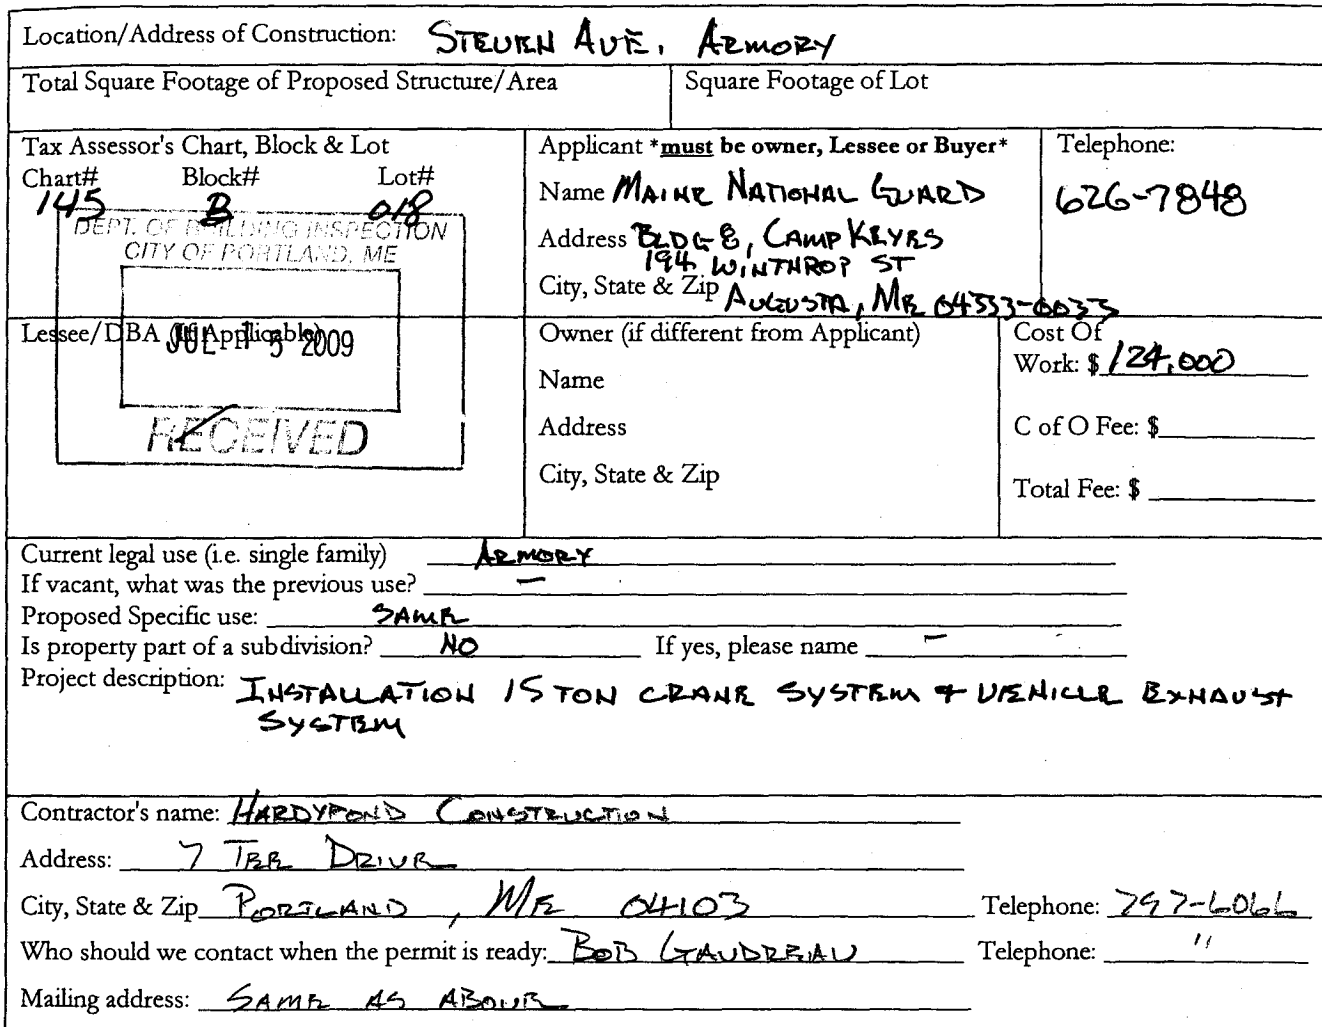 Location/Address of Construction: STEVEN AVE. ARMORY
Total Square Footage of Proposed Structure/Area
Square Footage of Lot
Tax Assessor's Chart, Block & Lot
Chart# Block# Lot#
145 B 018
DEPT. OF BUILDING INSPECTION
CITY OF PORTLAND, ME
JUL 15 2009
RECEIVED
Applicant *must be owner, Lessee or Buyer*
Name MAINE NATIONAL GUARD
Address BLDG 8, CAMP KEYES
194 WINTHROP ST
City, State & Zip AUGUSTA, ME 04333-0033
Telephone:
626-7848
Lessee/DBA (If Applicable)
Owner (if different from Applicant)
Name
Address
City, State & Zip
Cost Of
Work: $ 124,000
C of O Fee: $
Total Fee: $
Current legal use (i.e. single family) ARMORY
If vacant, what was the previous use? -
Proposed Specific use: SAME
Is property part of a subdivision? NO If yes, please name -
Project description: INSTALLATION 15 TON CRANE SYSTEM + VEHICLE EXHAUST
SYSTEM
Contractor's name: HARDYPOND CONSTRUCTION
Address: 7 TEE DRIVE
City, State & Zip PORTLAND, ME 04103 Telephone: 797-6066
Who should we contact when the permit is ready: BOB GAUDREAU Telephone: "
Mailing address: SAME AS ABOVE